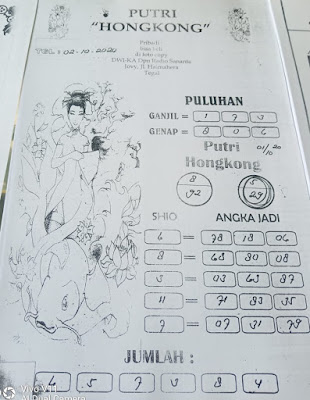 PUTRI
"HONGKONG"
TGL : 02-10-2020
PULUHAN
GANJIL = 1 7 3
GENAP = 8 0 6
Putri
Hongkong
01/10 20
8
92
29
SHIO ANGKA JADI
6 = 78 18 06
8 = 68 30 08
5 = 03 63 87
11 = 71 83 35
7 = 07 31 79
JUMLAH :
6 5 7 3 8 4
Vivo Y11
AI Dual Camera